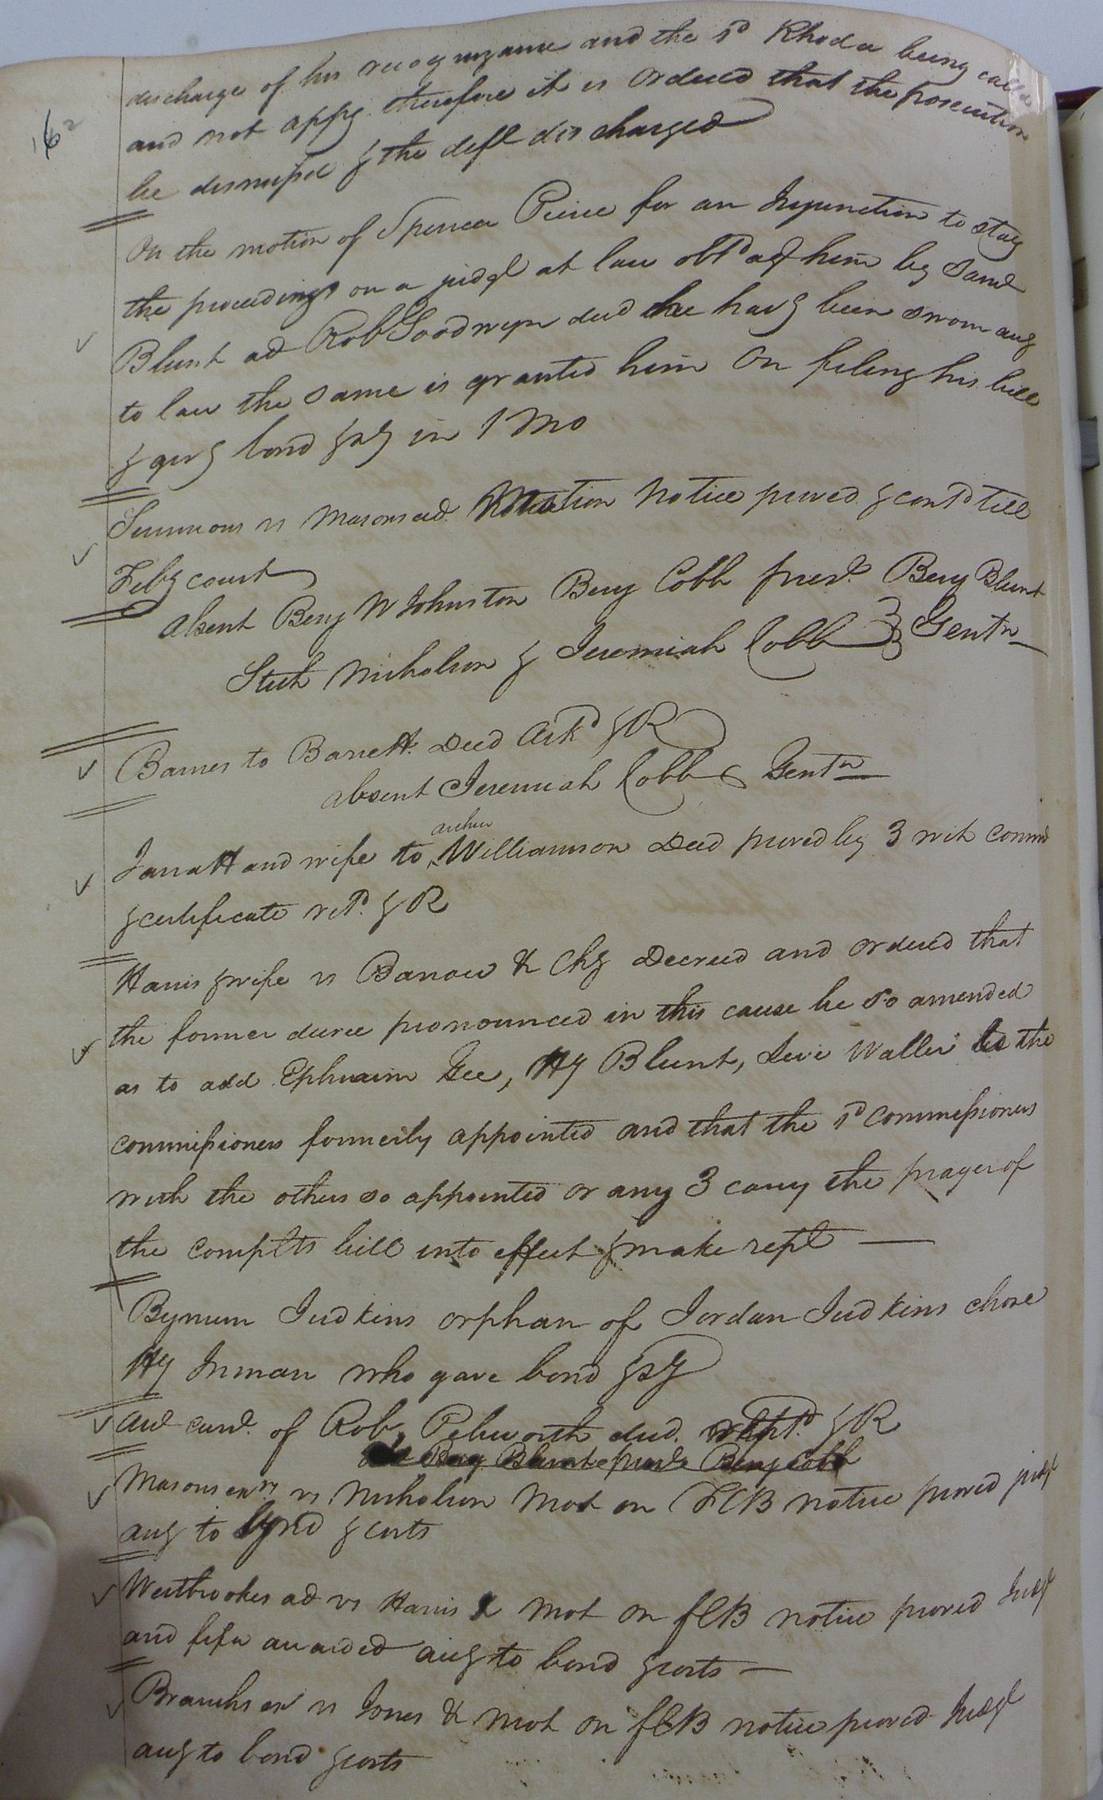 162
discharge of his recognizance and the sd Rhoda being called
and not appg. therefore it is ordered that the prosecution
be dismissed & the deft discharged
On the motion of Spencer Peirce for an Injunction to stay
the proceedings on a judgt at law obtd agt him by Saml
Blunt ad Rob Goodwyn decd he havg been sworn accg
to law the same is granted him On filing his bill
& givg bond &sy in 1 Mo
Simmons vs Masons ad. Motion Notice proved & contd till
Feby court
Absent Benj W Johnston Benj Cobb presd. Benj Blunt
Steth Nicholson & Jeremiah Cobb Gentn
Barnes to Barrett Deed Ackd & R
absent Jeremiah Cobb Gentn
Jarratt and wife to Archer Williamson Deed proved by 3 wit commn
& certificate retd. & R
Harris & wife vs Barrow & Chy Decreed and ordered that
the former decree pronounced in this cause be so amended
as to add Ephraim Gee, Hy Blunt, Levi Waller to the
commissioners formerly appointed and that the sd commissioners
with the others so appointed or any 3 carry the prayer of
the complts bill into effect & make rept
Bynum Judkins orphan of Jordan Judkins chose
Hy Inman who gave bond &sy
Aud curt. of Rob. decd. & R
Benj Blunt presd Benj Cobb
Masons exrs vs Nicholson Mot on FCB notice proved judgt
accg to bond & costs
Westbrookes ad vs Harris & Mot on FCB notice proved Judgt
and fifa awarded accg to bond & costs
Branchs ex vs Jones & Mot on FCB notice proved Judgt
accg to bond & costs